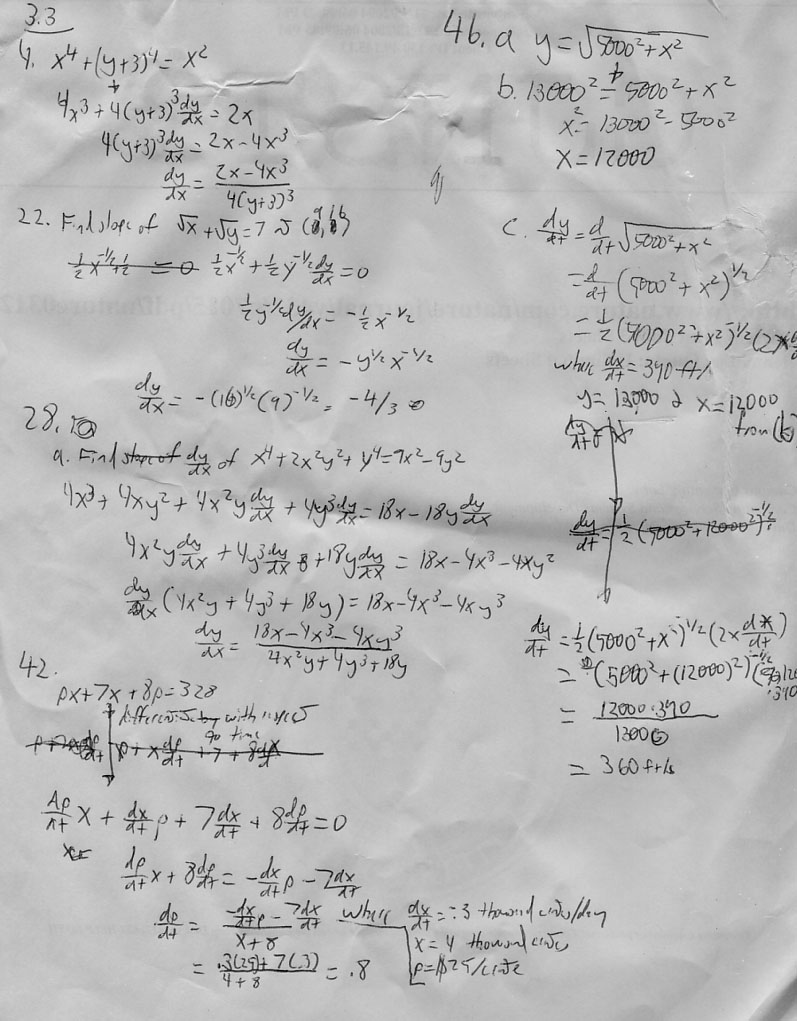 3.3
4. x⁴ + (y+3)⁴ = x²
4x³ + 4(y+3)³ dy/dx = 2x
4(y+3)³ dy/dx = 2x - 4x³
dy/dx = (2x - 4x³)/(4(y+3)³)
22. Find slope of √x + √y = 7 @ (9,16)
½x^-½ + ½y^-½ dy/dx = 0
½y^-1/2 dy/dx = -½x^-1/2
dy/dx = -y^1/2 x^-1/2
dy/dx = -(16)^1/2 (9)^-1/2 = -4/3
28.
a. Find dy/dx of x⁴ + 2x²y² + y⁴ = 9x² - 9y²
4x³ + 4xy² + 4x²y dy/dx + 4y³ dy/dx = 18x - 18y dy/dx
4x²y dy/dx + 4y³ dy/dx + 18y dy/dx = 18x - 4x³ - 4xy²
dy/dx (4x²y + 4y³ + 18y) = 18x - 4x³ - 4xy³
dy/dx = (18x - 4x³ - 4xy³)/(4x²y + 4y³ + 18y)
42.
px + 7x + 8p = 328
differentiating with respect
to time
dp/dt x + dx/dt p + 7 dx/dt + 8 dp/dt = 0
dp/dt x + 8 dp/dt = -dx/dt p - 7 dx/dt
dp/dt = (-dx/dt p - 7 dx/dt)/(x+8) where dx/dt = -.3 thousand
x = 4 thousand
p = $25/
= (.3(25) + 7(.3))/(4+8) = .8
46. a y = √(5000² + x²)
b. 13000² = 5000² + x²
x² = 13000² - 5000²
x = 12000
c. dy/dt = d/dt √(5000² + x²)
= d/dt (5000² + x²)^1/2
= ½(5000² + x²)^-1/2 (2x
where dx/dt = 390 ft/s
y = 13000 & x = 12000
from (b)
dy/dt = ½(5000² + x²)^-1/2 (2x dx/dt)
= (5000² + (12000)²)^-1/2
= (12000·390)/13000
= 360 ft/s